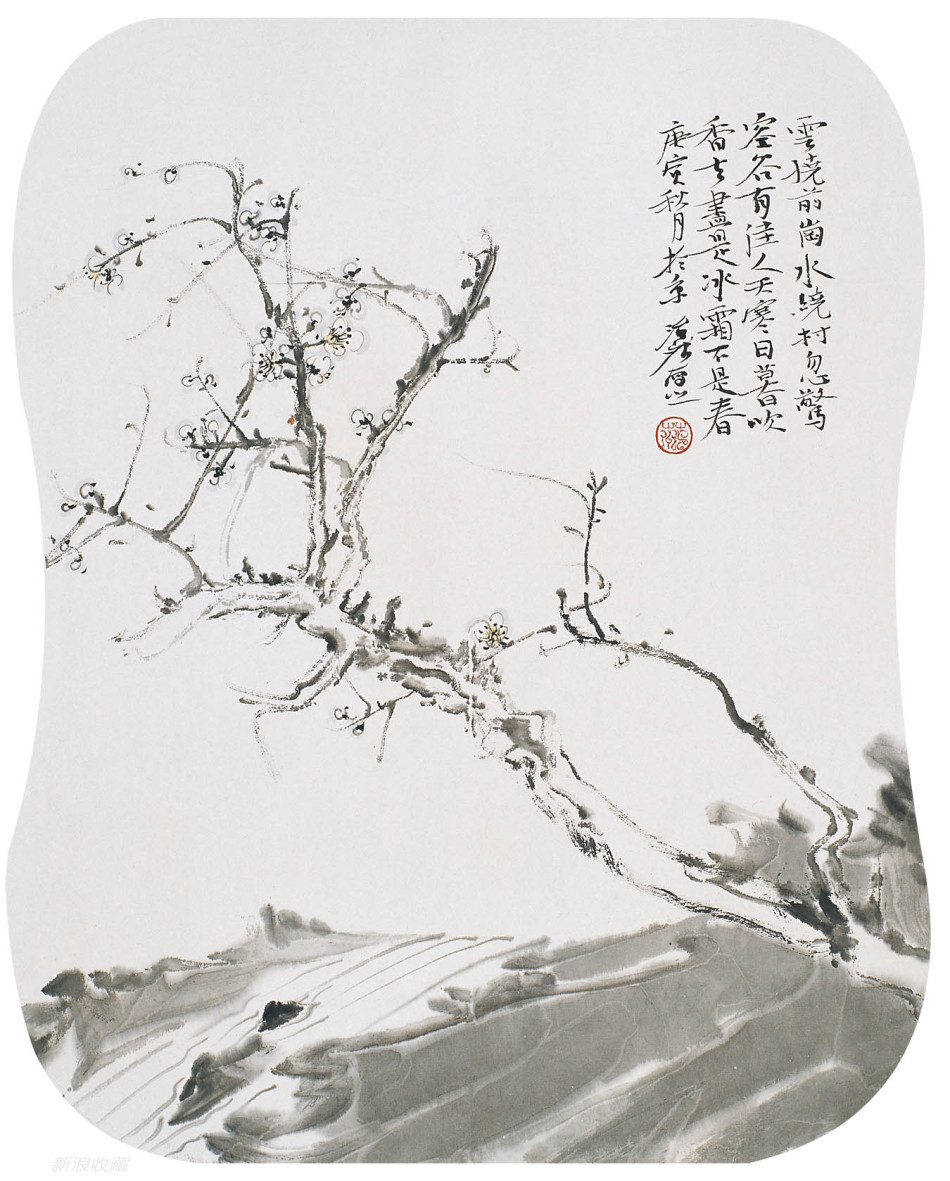 雲繞前崗水繞村忽驚
空谷有佳人天寒日暮吹
香去盡是冰霜不是春
庚寅秋月於京
新浪收藏